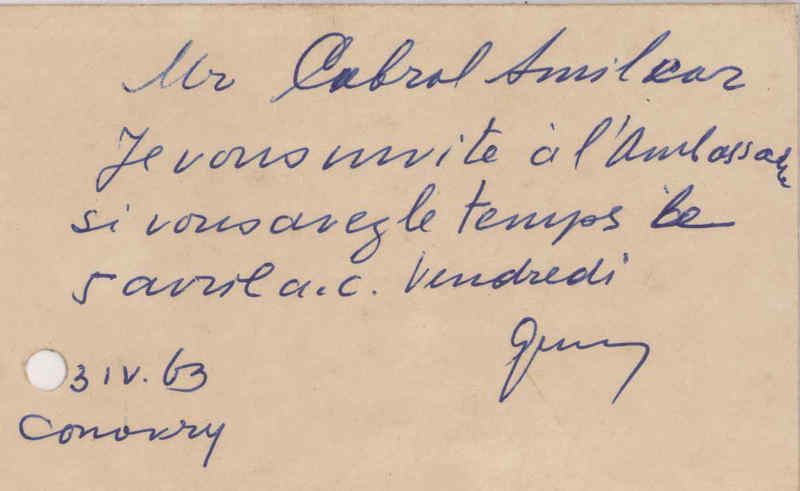 Mr Cabral Amilcar
Je vous invite à l'Ambassade
si vous avez le temps le
5 avril a.c. Vendredi
3 IV. 63
Conakry